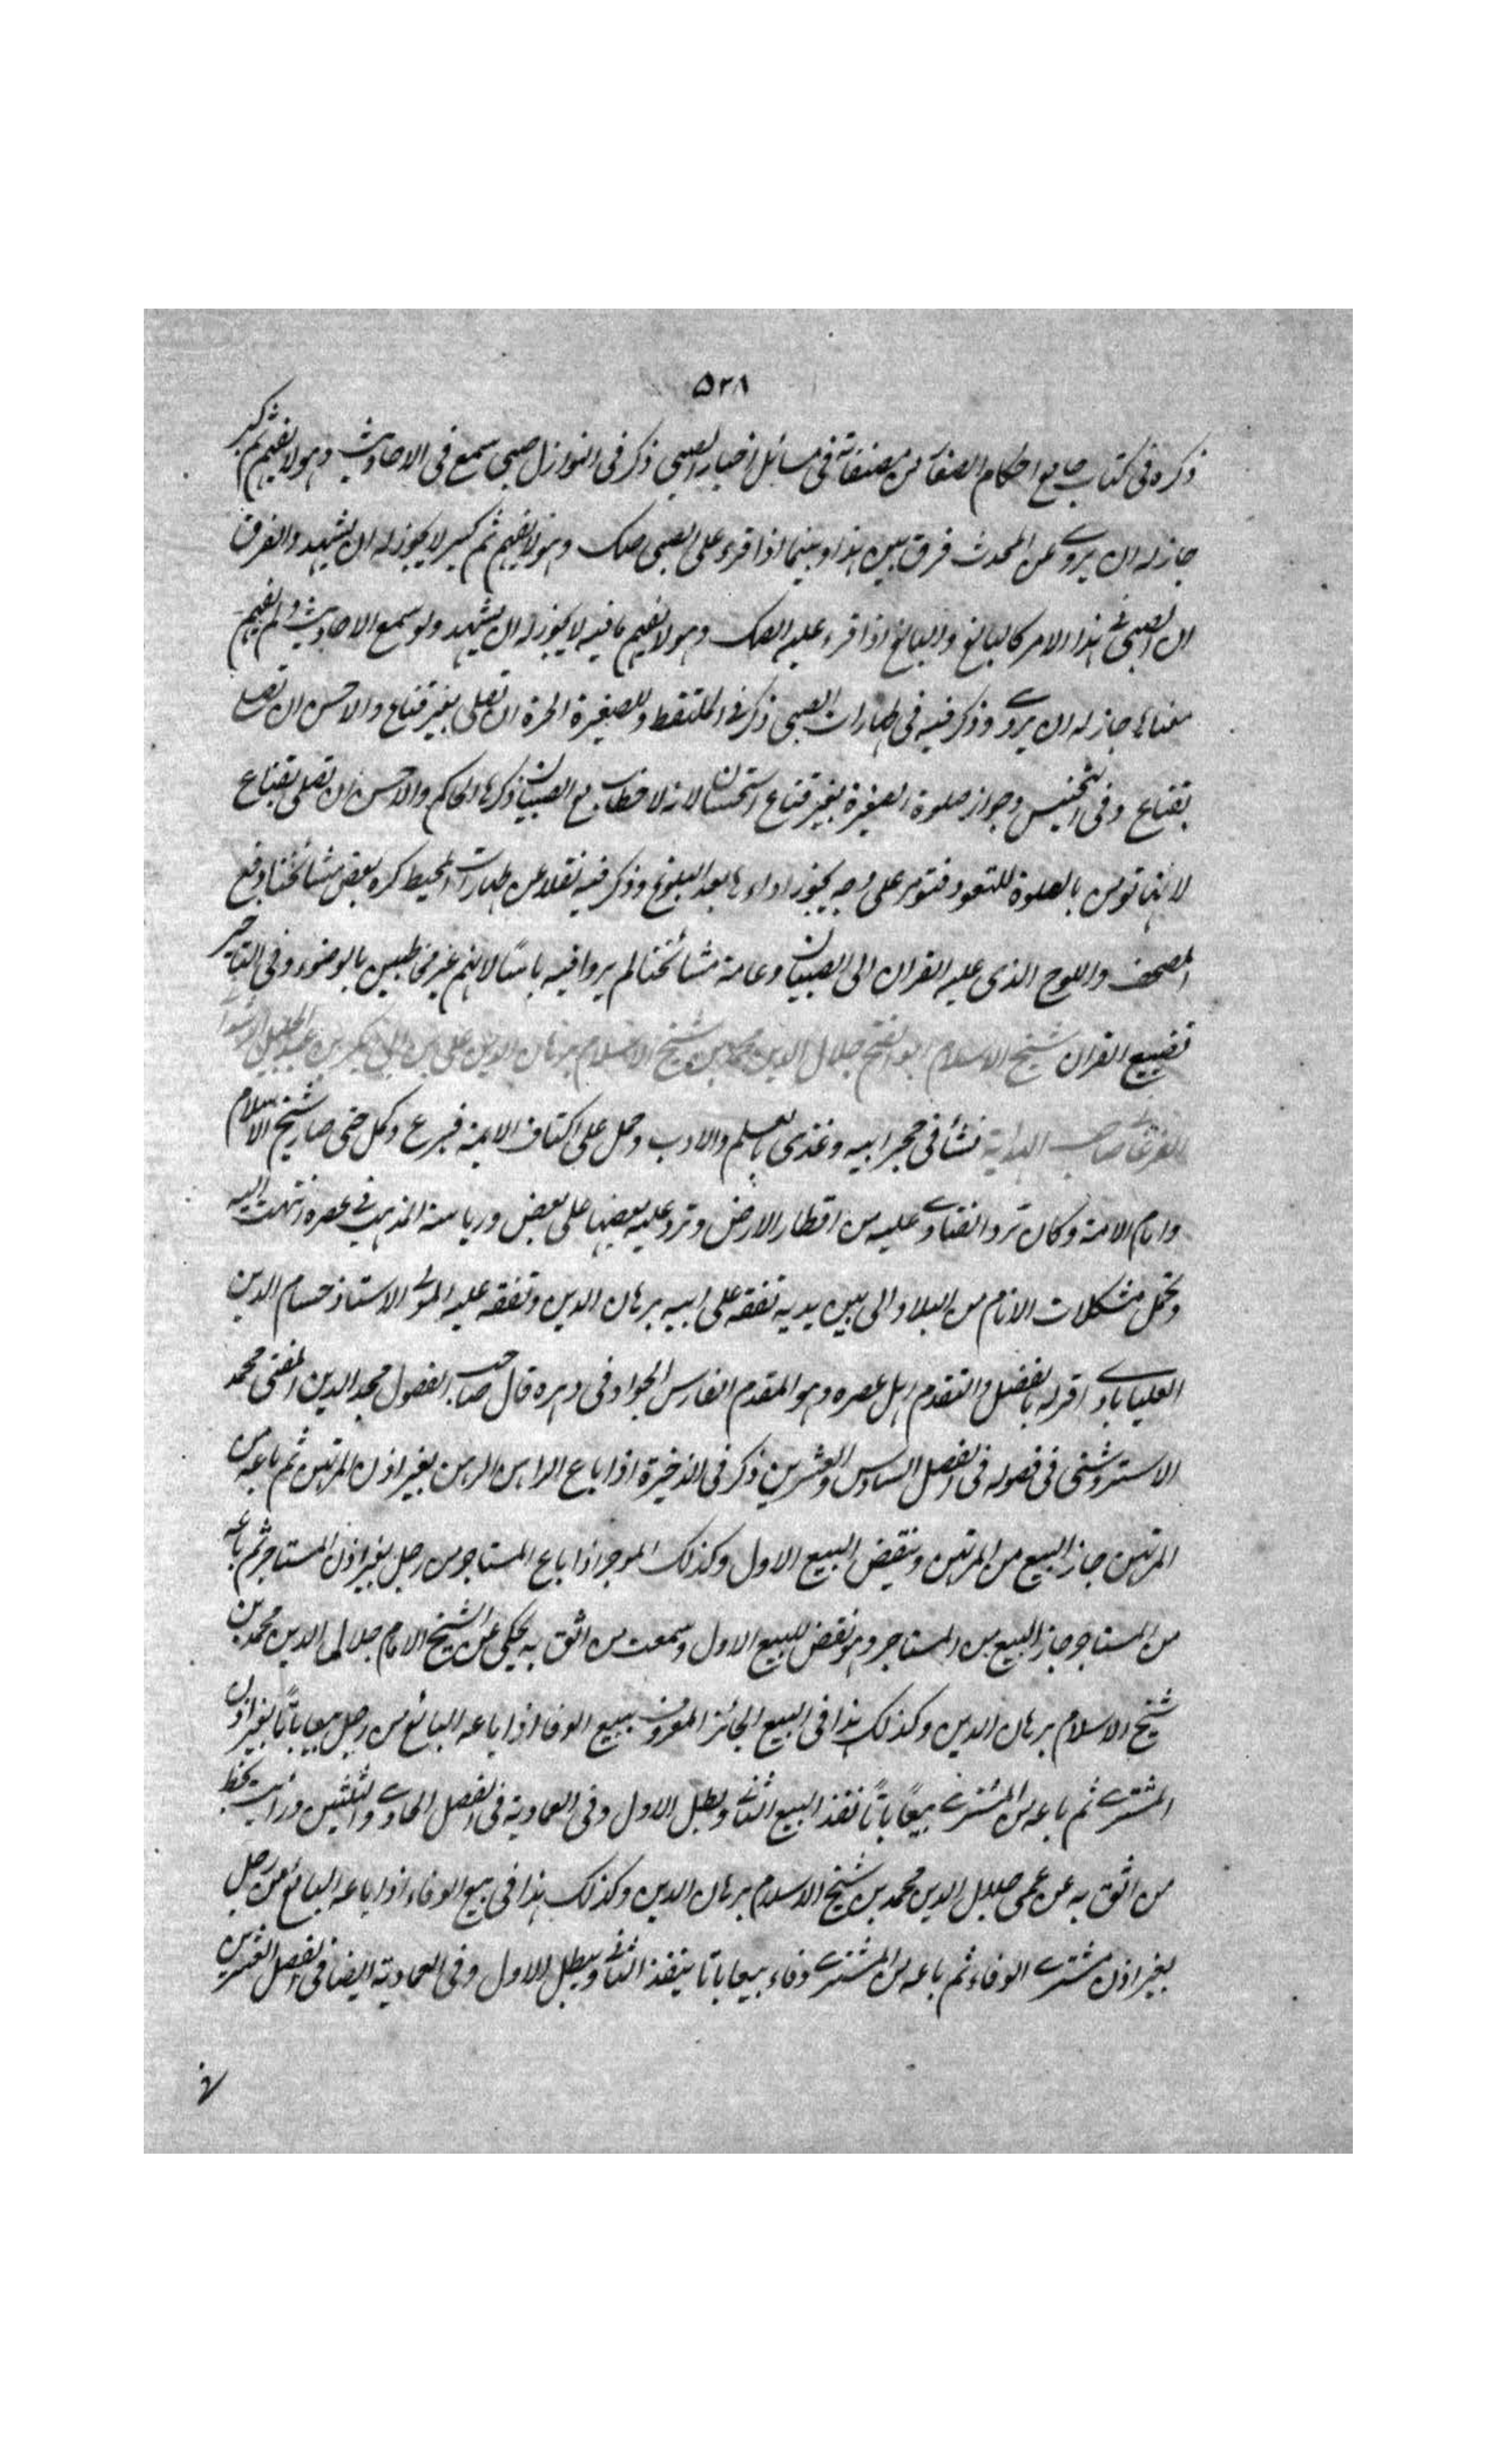 ٥٣٨
ذكره فى كتاب جامع احكام الصغار من مصنفاته فى مسائل اخبار الصبى ذكر فى النوازل صبى سمع فى الاحاديث وهو لا يفهم ثم كبر
جاز له ان يروى عن المحدث فرق بين هذا وبينما اذا قرء على الصبى صك وهو لا يفهم ثم كبر لا يجوز له ان يشهد والفرق
ان الصبى فى هذا الامر كالبالغ والبالغ اذا قرء عليه الصك وهو لا يفهم ما فيه لا يجوز له ان يشهد ولو سمع الاحاديث ولم يفهم
معناها جاز له ان يروى وذكر فيه فى طهارات الصبى ذكر فى الملتقط وللصغيرة الحرة ان تصلى بغير قناع والاحسن ان تصلى
بقناع وفى التجنيس وجواز صلوة الصغيرة بغير قناع استحسان لانه لا خطاب مع الصبيان ذكرها الحاكم والاحسن ان تصلى بقناع
لانها تومر بالصلوة للتعود فتومر على وجه يجوز اداءها بعد البلوغ وذكر فيه نقلا عن طهارات المحيط كره بعض مشائخنا دفع
المصحف واللوح الذى عليه القران الى الصبيان وعامة مشائخنا لم يروا فيه باسًا لانهم غير مخاطبين بالوضوء وفى التاخير
تضييع القران شيخ الاسلام ابو الفتح جلال الدين محمد بن شيخ الاسلام برهان الدين على بن ابى بكر بن عبد الجليل الرشدانى
الفرغانى صاحب الهداية نشأ فى حجر ابيه وغذى بالعلم والادب وحل على اكتاف الايمة فبرع وكمل حتى صار شيخ الاسلام
وامام الامة وكان ترد الفتاوى عليه من اقطار الارض وترد عليه بعضها على بعض ورياسة المذهب فى عصره انتهت اليه
وتحمل مشكلات الانام من البلاد الى بين يديه تفقه على ابيه برهان الدين وتفقه عليه المولى الاستاذ حسام الدين
العلياباد اقر له بالفضل والتقدم اهل عصره وهو المقدم الفارس الجواد فى دهره قال صاحب الفصول مجد الدين المفتى محمد
الاستروشنى فى فصوله فى الفصل السادس والعشرين ذكر فى الذخيرة اذا باع الراهن الرهن بغير اذن المرتهن ثم باعه من
المرتهن جاز البيع من المرتهن وينقض البيع الاول وكذلك الموجر اذا باع المستاجر من رجل بغير اذن المستاجر ثم باعه
من المستاجر جاز البيع من المستاجر وهو نقض للبيع الاول وسمعت من اثق به يحكى عن الشيخ الامام جلال الدين محمد بن
شيخ الاسلام برهان الدين وكذلك هذا فى البيع الجائز المعروف ببيع الوفا اذا باعه البائع من رجل بيعا باتًا بغير اذن
المشترى ثم باعه من المشترى بيعًا باتًا نفذ البيع الثانى وبطل الاول وفى العمادية فى الفصل الحادى والثلثين ورايت بخط
من اثق به عن عمى جلال الدين محمد بن شيخ الاسلام برهان الدين وكذلك هذا فى بيع الوفاء اذا باعه البائع من رجل
بغير اذن مشترى الوفاء ثم باعه من المشترى وفاء بيعا باتا ينفذ الثانى ويبطل الاول وفى العمادية ايضا فى الفصل العشرين